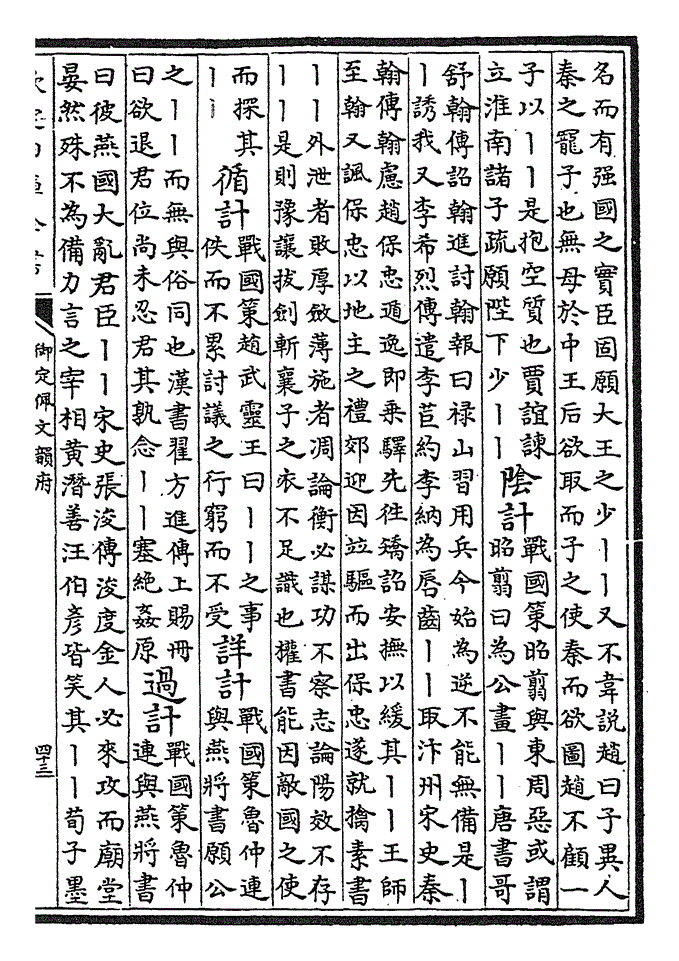 名而有强國之實臣固願大王之少丨丨又不韋說趙曰子異人
秦之寵子也無母於中王后欲取而子之使秦而欲圖趙不顧一
子以丨丨是抱空質也賈誼諫
立淮南諸子疏願陛下少丨丨
陰計
戰國策昭翦與東周惡或謂
昭翦曰為公畫丨丨唐書哥
舒翰傳詔翰進討翰報曰禄山習用兵今始為逆不能無備是丨
丨誘我又李希烈傳遣李苣約李納為唇齒丨丨取汴州宋史秦
翰傳翰慮趙保忠遁逸即乗驛先徃矯詔安撫以緩其丨丨王師
至翰又諷保忠以地主之禮郊迎因竝驅而出保忠遂就擒素書
丨丨外泄者敗厚斂薄施者凋論衡必謀功不察志論陽效不存
丨丨是則豫讓拔劍斬襄子之衣不足識也權書能因敵國之使
而探其
丨丨
循計
戰國策趙武靈王曰丨丨之事
佚而不累討議之行窮而不受
詳計
戰國策魯仲連
與燕將書願公
之丨丨而無與俗同也漢書翟方進傳上賜冊
曰欲退君位尚未忍君其孰念丨丨塞絶姦原
過計
戰國策魯仲
連與燕將書
曰彼燕國大亂君臣丨丨宋史張浚傳浚度金人必來攻而廟堂
晏然殊不為備力言之宰相黄潛善汪伯彦皆笑其丨丨荀子墨
欽定四庫全書
御定佩文韻府
四十三